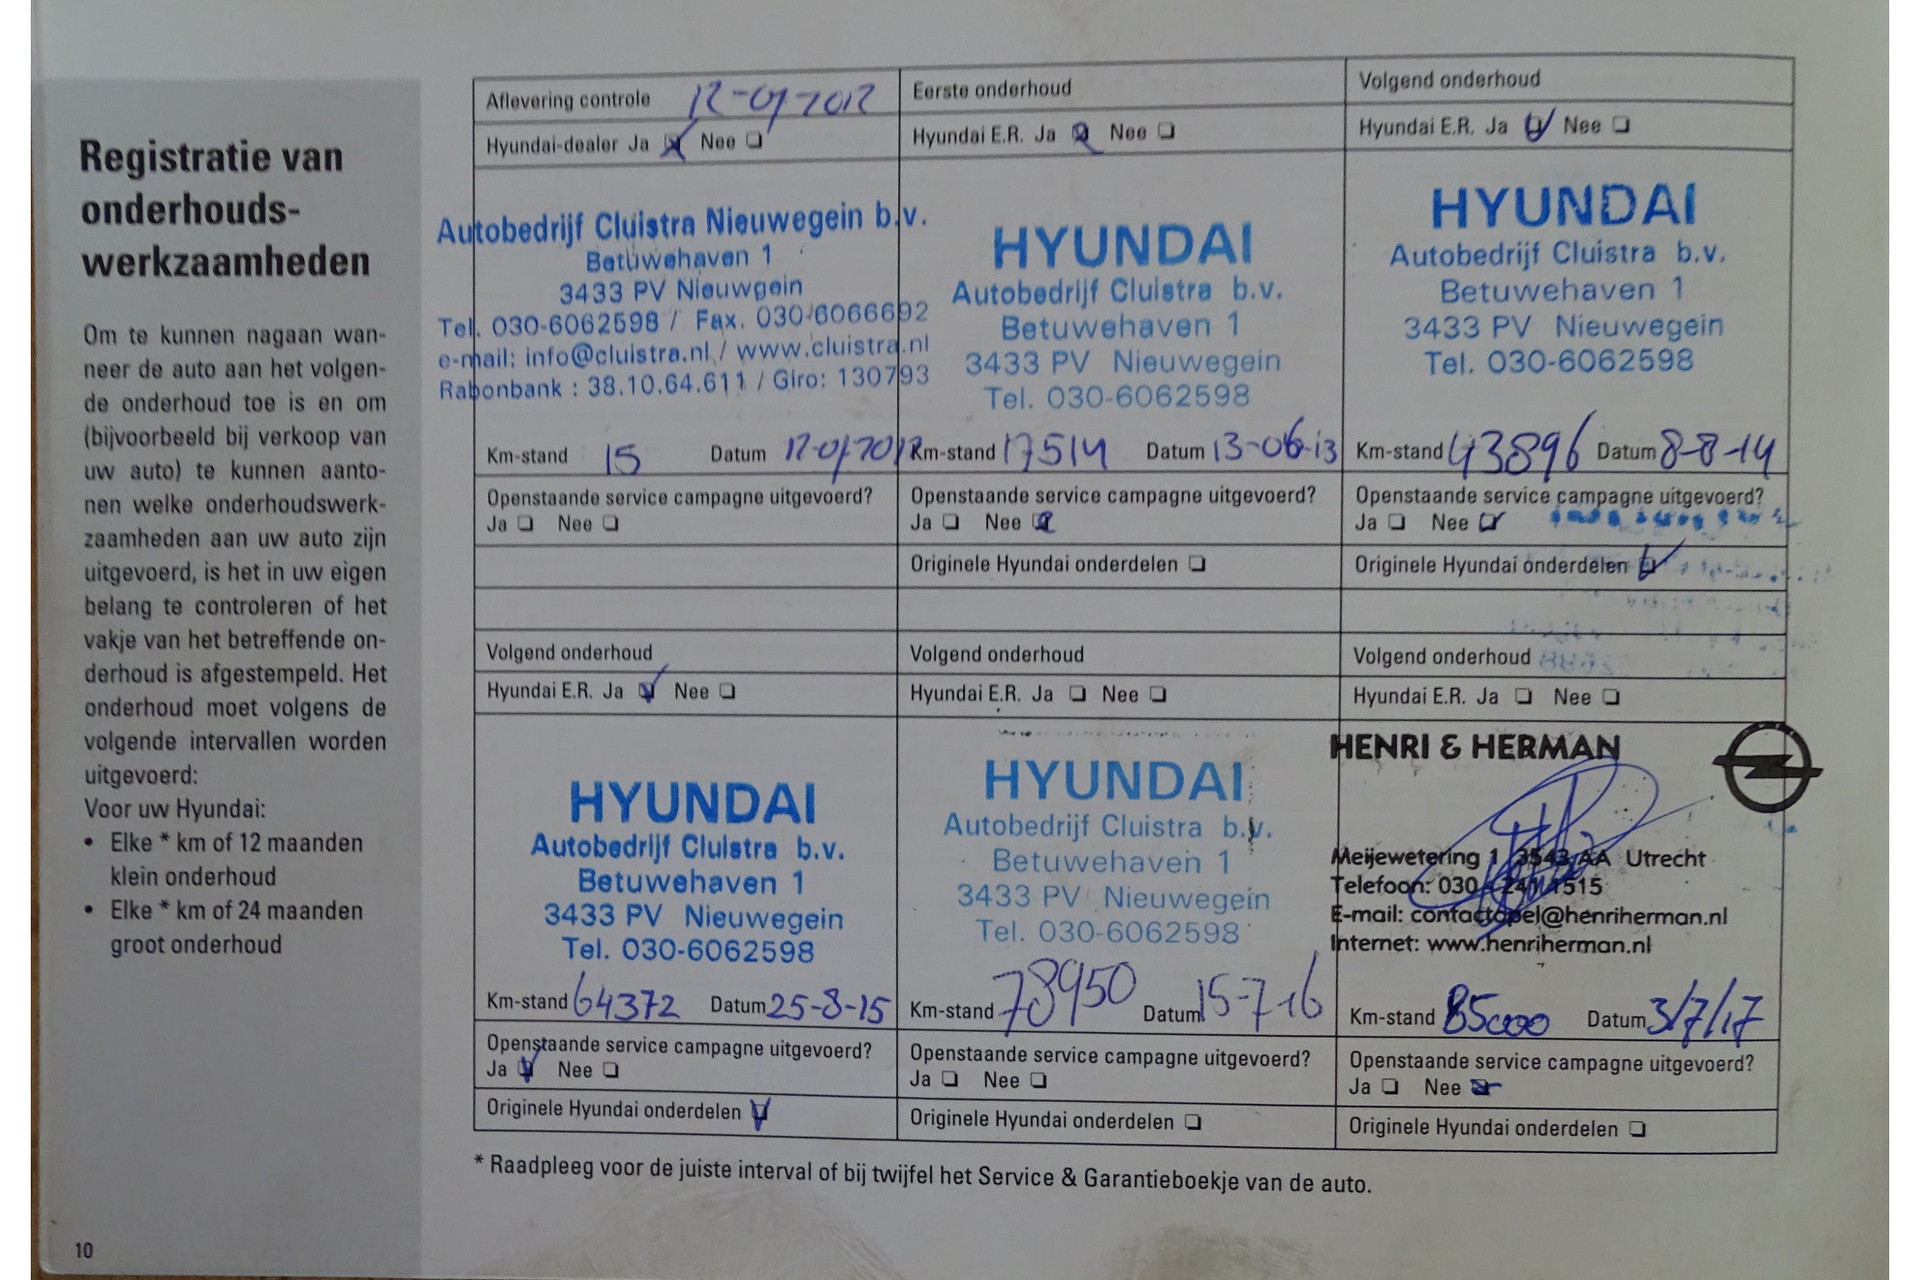 Registratie van
onderhouds-
werkzaamheden
Om te kunnen nagaan wan-
neer de auto aan het volgen-
de onderhoud toe is en om
(bijvoorbeeld bij verkoop van
uw auto) te kunnen aanto-
nen welke onderhoudswerk-
zaamheden aan uw auto zijn
uitgevoerd, is het in uw eigen
belang te controleren of het
vakje van het betreffende on-
derhoud is afgestempeld. Het
onderhoud moet volgens de
volgende intervallen worden
uitgevoerd:
Voor uw Hyundai:
• Elke * km of 12 maanden
klein onderhoud
• Elke * km of 24 maanden
groot onderhoud
10
Aflevering controle 12-01-2012
Hyundai-dealer Ja Nee
Autobedrijf Cluistra Nieuwegein b.v.
Betuwehaven 1
3433 PV Nieuwgein
Tel. 030-6062598 / Fax. 030-6066692
e-mail: info@cluistra.nl / www.cluistra.nl
Rabonbank : 38.10.64.611 / Giro: 130793
Km-stand 15 Datum 12-01-2012
Openstaande service campagne uitgevoerd?
Ja Nee
Eerste onderhoud
Hyundai E.R. Ja Nee
HYUNDAI
Autobedrijf Cluistra b.v.
Betuwehaven 1
3433 PV Nieuwegein
Tel. 030-6062598
Km-stand 17514 Datum 13-06-13
Openstaande service campagne uitgevoerd?
Ja Nee
Originele Hyundai onderdelen
Volgend onderhoud
Hyundai E.R. Ja Nee
HYUNDAI
Autobedrijf Cluistra b.v.
Betuwehaven 1
3433 PV Nieuwegein
Tel. 030-6062598
Km-stand 43896 Datum 8-8-14
Openstaande service campagne uitgevoerd?
Ja Nee
Originele Hyundai onderdelen
Volgend onderhoud
Hyundai E.R. Ja Nee
HYUNDAI
Autobedrijf Cluistra b.v.
Betuwehaven 1
3433 PV Nieuwegein
Tel. 030-6062598
Km-stand 64372 Datum 25-8-15
Openstaande service campagne uitgevoerd?
Ja Nee
Originele Hyundai onderdelen
Volgend onderhoud
Hyundai E.R. Ja Nee
HYUNDAI
Autobedrijf Cluistra b.v.
Betuwehaven 1
3433 PV Nieuwegein
Tel. 030-6062598
Km-stand 78950 Datum 15-7-16
Openstaande service campagne uitgevoerd?
Ja Nee
Originele Hyundai onderdelen
Volgend onderhoud
Hyundai E.R. Ja Nee
HENRI & HERMAN
Meijewetering 1 3543 AA Utrecht
Telefoon: 030 - 241 1515
E-mail: contactopel@henriherman.nl
Internet: www.henriherman.nl
Km-stand 85000 Datum 3/7/17
Openstaande service campagne uitgevoerd?
Ja Nee
Originele Hyundai onderdelen
* Raadpleeg voor de juiste interval of bij twijfel het Service & Garantieboekje van de auto.